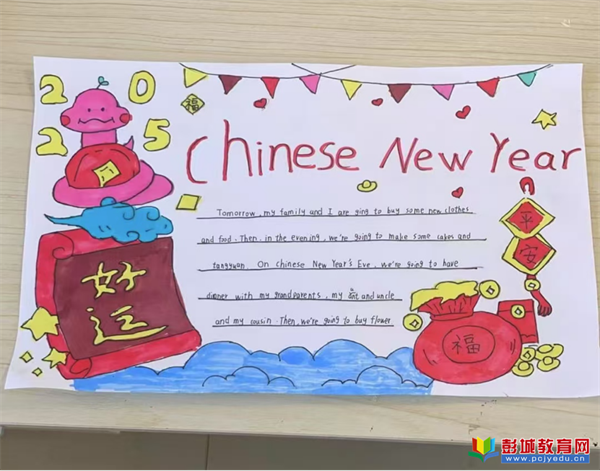 2 0
2 5
福
Chinese New Year
Tomorrow, my family and I are ging to buy some new clothes
and food. Then, in the evening, we're going to make some cakes and
tangyuan. On Chinese New Year's Eve, we're going to have
dinner with my grandparents, my aunt and uncle
and my cousin. Then, we're going to buy flower.
好运
平安
福
彭城教育网
www.pcjyedu.cn